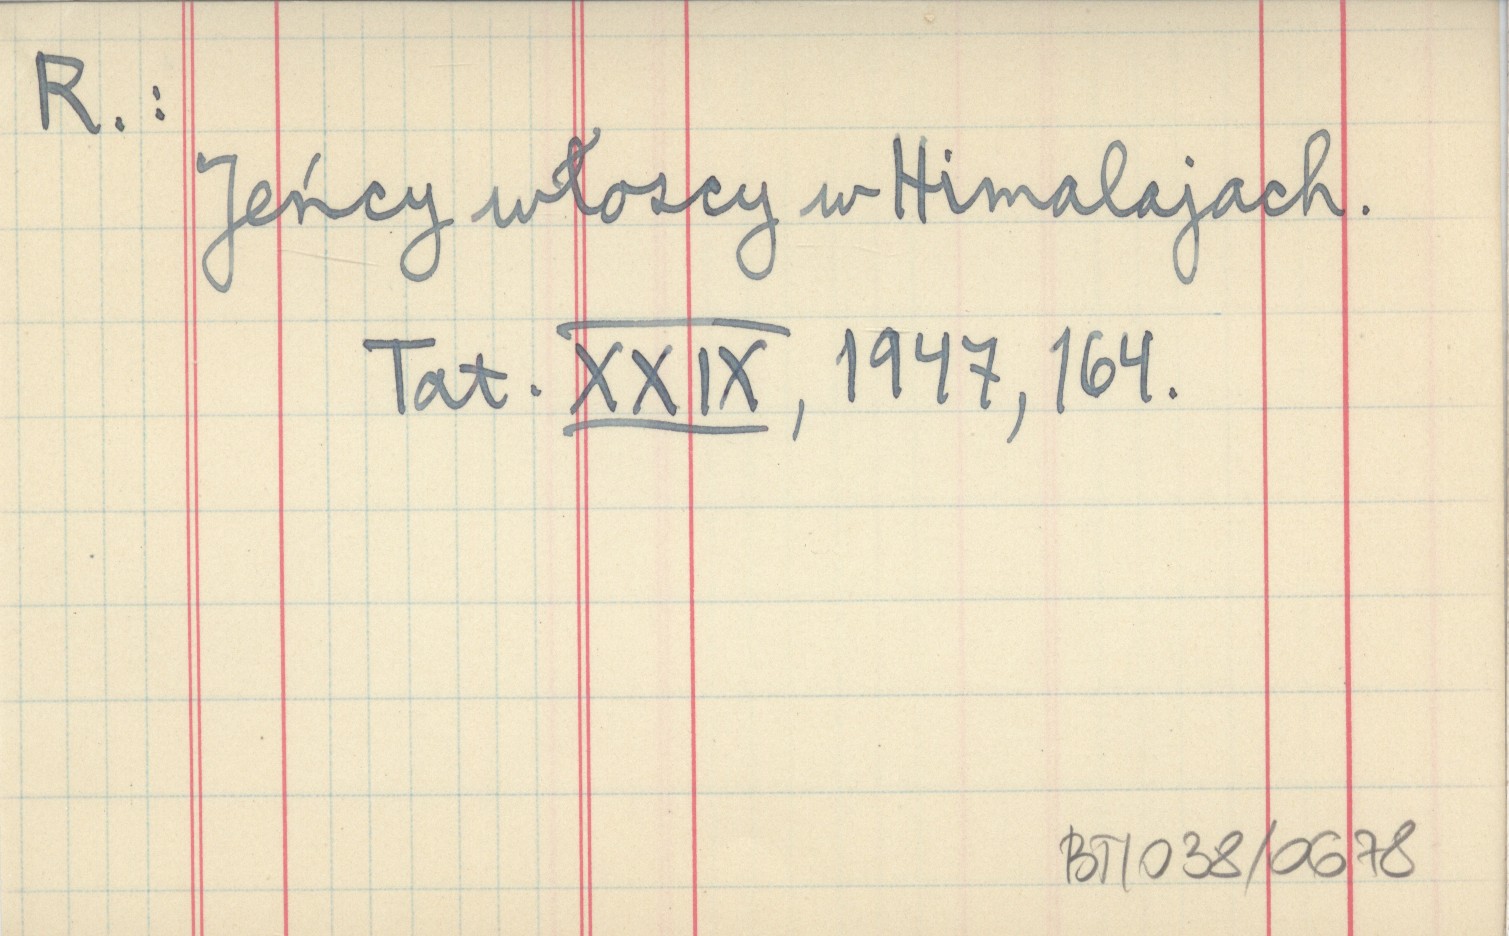 R.:
Jeńcy włoscy w Himalajach.
Tat. XXIX, 1947, 164.
BT/038/0678